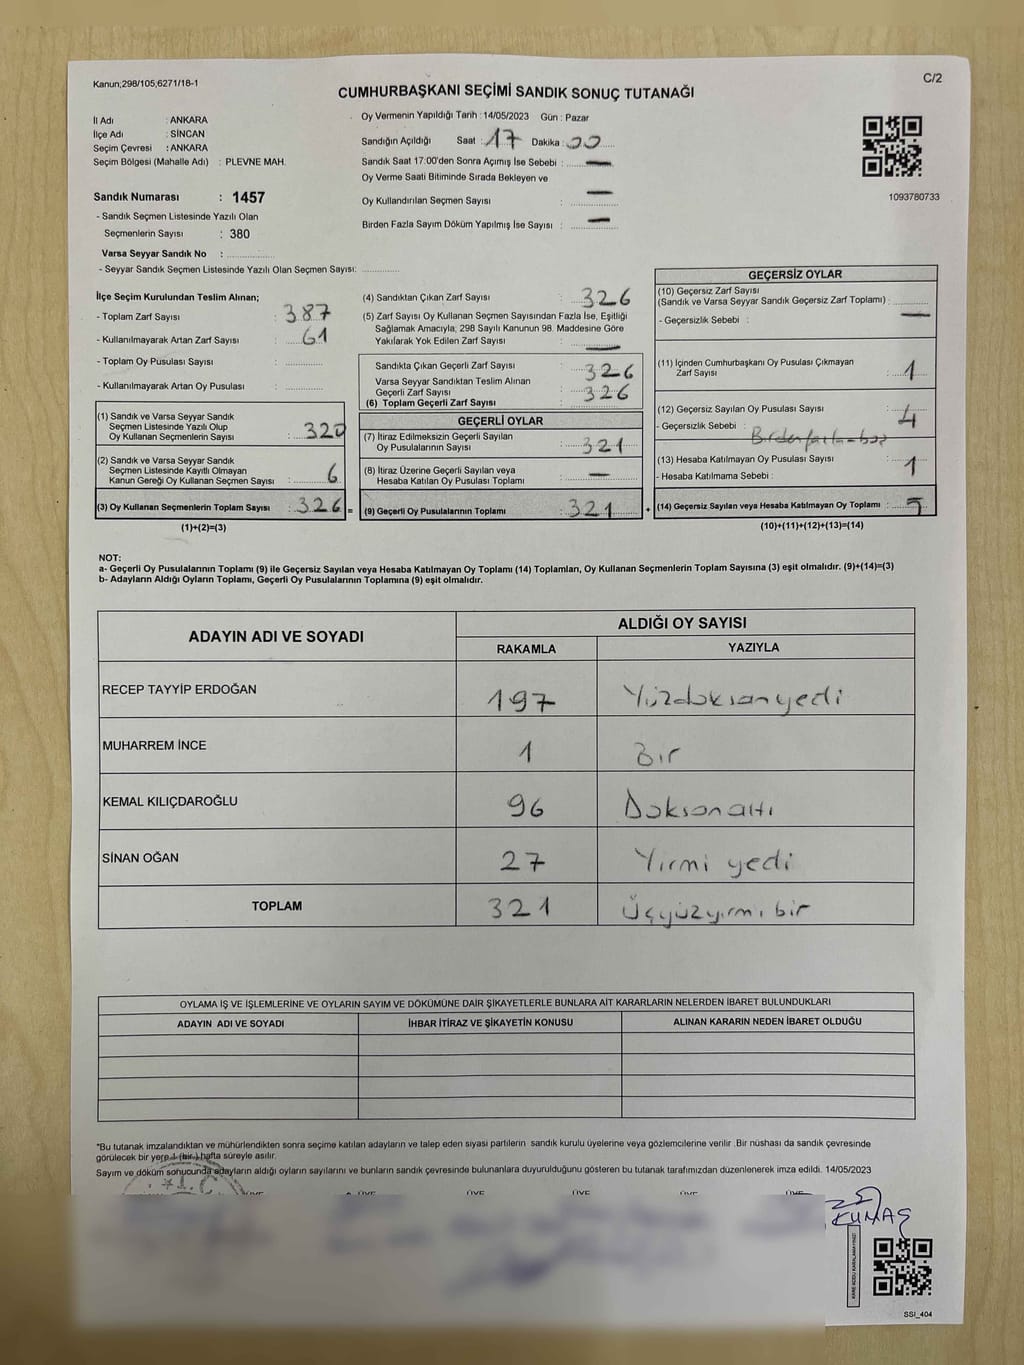 Kanun;298/105,6271/18-1
C/2
CUMHURBAŞKANI SEÇİMİ SANDIK SONUÇ TUTANAĞI
İl Adı : ANKARA
İlçe Adı : SİNCAN
Seçim Çevresi : ANKARA
Seçim Bölgesi (Mahalle Adı) : PLEVNE MAH.
Sandık Numarası : 1457
- Sandık Seçmen Listesinde Yazılı Olan
Seçmenlerin Sayısı : 380
Varsa Seyyar Sandık No :
- Seyyar Sandık Seçmen Listesinde Yazılı Olan Seçmen Sayısı:
Oy Vermenin Yapıldığı Tarih : 14/05/2023 Gün : Pazar
Sandığın Açıldığı Saat : 17 Dakika : 00
Sandık Saat 17:00'den Sonra Açımış İse Sebebi : —
Oy Verme Saati Bitiminde Sırada Bekleyen ve
Oy Kullandırılan Seçmen Sayısı : —
Birden Fazla Sayım Döküm Yapılmış İse Sayısı : —
1093780733
İlçe Seçim Kurulundan Teslim Alınan;
- Toplam Zarf Sayısı : 387
- Kullanılmayarak Artan Zarf Sayısı : 61
- Toplam Oy Pusulası Sayısı :
- Kullanılmayarak Artan Oy Pusulası :
(1) Sandık ve Varsa Seyyar Sandık
Seçmen Listesinde Yazılı Olup
Oy Kullanan Seçmenlerin Sayısı : 320
(2) Sandık ve Varsa Seyyar Sandık
Seçmen Listesinde Kayıtlı Olmayan
Kanun Gereği Oy Kullanan Seçmen Sayısı : 6
(3) Oy Kullanan Seçmenlerin Toplam Sayısı : 326 =
(1)+(2)=(3)
(4) Sandıktan Çıkan Zarf Sayısı : 326
(5) Zarf Sayısı Oy Kullanan Seçmen Sayısından Fazla İse, Eşitliği
Sağlamak Amacıyla; 298 Sayılı Kanunun 98. Maddesine Göre
Yakılarak Yok Edilen Zarf Sayısı : —
Sandıkta Çıkan Geçerli Zarf Sayısı : 326
Varsa Seyyar Sandıktan Teslim Alınan
Geçerli Zarf Sayısı : 326
(6) Toplam Geçerli Zarf Sayısı :
GEÇERLİ OYLAR
(7) İtiraz Edilmeksizin Geçerli Sayılan
Oy Pusulalarının Sayısı : 321
(8) İtiraz Üzerine Geçerli Sayılan veya
Hesaba Katılan Oy Pusulası Toplamı : —
(9) Geçerli Oy Pusulalarının Toplamı : 321 +
GEÇERSİZ OYLAR
(10) Geçersiz Zarf Sayısı
(Sandık ve Varsa Seyyar Sandık Geçersiz Zarf Toplamı) :
- Geçersizlik Sebebi : —
(11) İçinden Cumhurbaşkanı Oy Pusulası Çıkmayan
Zarf Sayısı : 1
(12) Geçersiz Sayılan Oy Pusulası Sayısı : 4
- Geçersizlik Sebebi :
(13) Hesaba Katılmayan Oy Pusulası Sayısı : 1
- Hesaba Katılmama Sebebi :
(14) Geçersiz Sayılan veya Hesaba Katılmayan Oy Toplamı : 5
(10)+(11)+(12)+(13)=(14)
NOT:
a- Geçerli Oy Pusulalarının Toplamı (9) ile Geçersiz Sayılan veya Hesaba Katılmayan Oy Toplamı (14) Toplamları, Oy Kullanan Seçmenlerin Toplam Sayısına (3) eşit olmalıdır. (9)+(14)=(3)
b- Adayların Aldığı Oyların Toplamı, Geçerli Oy Pusulalarının Toplamına (9) eşit olmalıdır.
ADAYIN ADI VE SOYADI
ALDIĞI OY SAYISI
RAKAMLA YAZIYLA
RECEP TAYYİP ERDOĞAN 197 Yüzdoksanyedi
MUHARREM İNCE 1 Bir
KEMAL KILIÇDAROĞLU 96 Doksanaltı
SİNAN OĞAN 27 Yirmi yedi
TOPLAM 321 Üçyüzyirmi bir
OYLAMA İŞ VE İŞLEMLERİNE VE OYLARIN SAYIM VE DÖKÜMÜNE DAİR ŞİKAYETLERLE BUNLARA AİT KARARLARIN NELERDEN İBARET BULUNDUKLARI
ADAYIN ADI VE SOYADI İHBAR İTİRAZ VE ŞİKAYETİN KONUSU ALINAN KARARIN NEDEN İBARET OLDUĞU
*Bu tutanak imzalandıktan ve mühürlendikten sonra seçime katılan adayların ve talep eden siyasi partilerin sandık kurulu üyelerine veya gözlemcilerine verilir .Bir nüshası da sandık çevresinde
görülecek bir yere 1 (bir ) hafta süreyle asılır.
Sayım ve döküm sonucunda adayların aldığı oyların sayılarını ve bunların sandık çevresinde bulunanlara duyurulduğunu gösteren bu tutanak tarafımızdan düzenlenerek imza edildi. 14/05/2023
T.C.
ÜYE ÜYE ÜYE ÜYE ÜYE ÜYE
KUMAŞ
KARE KODU KARALAMAYINIZ!
SSI_404